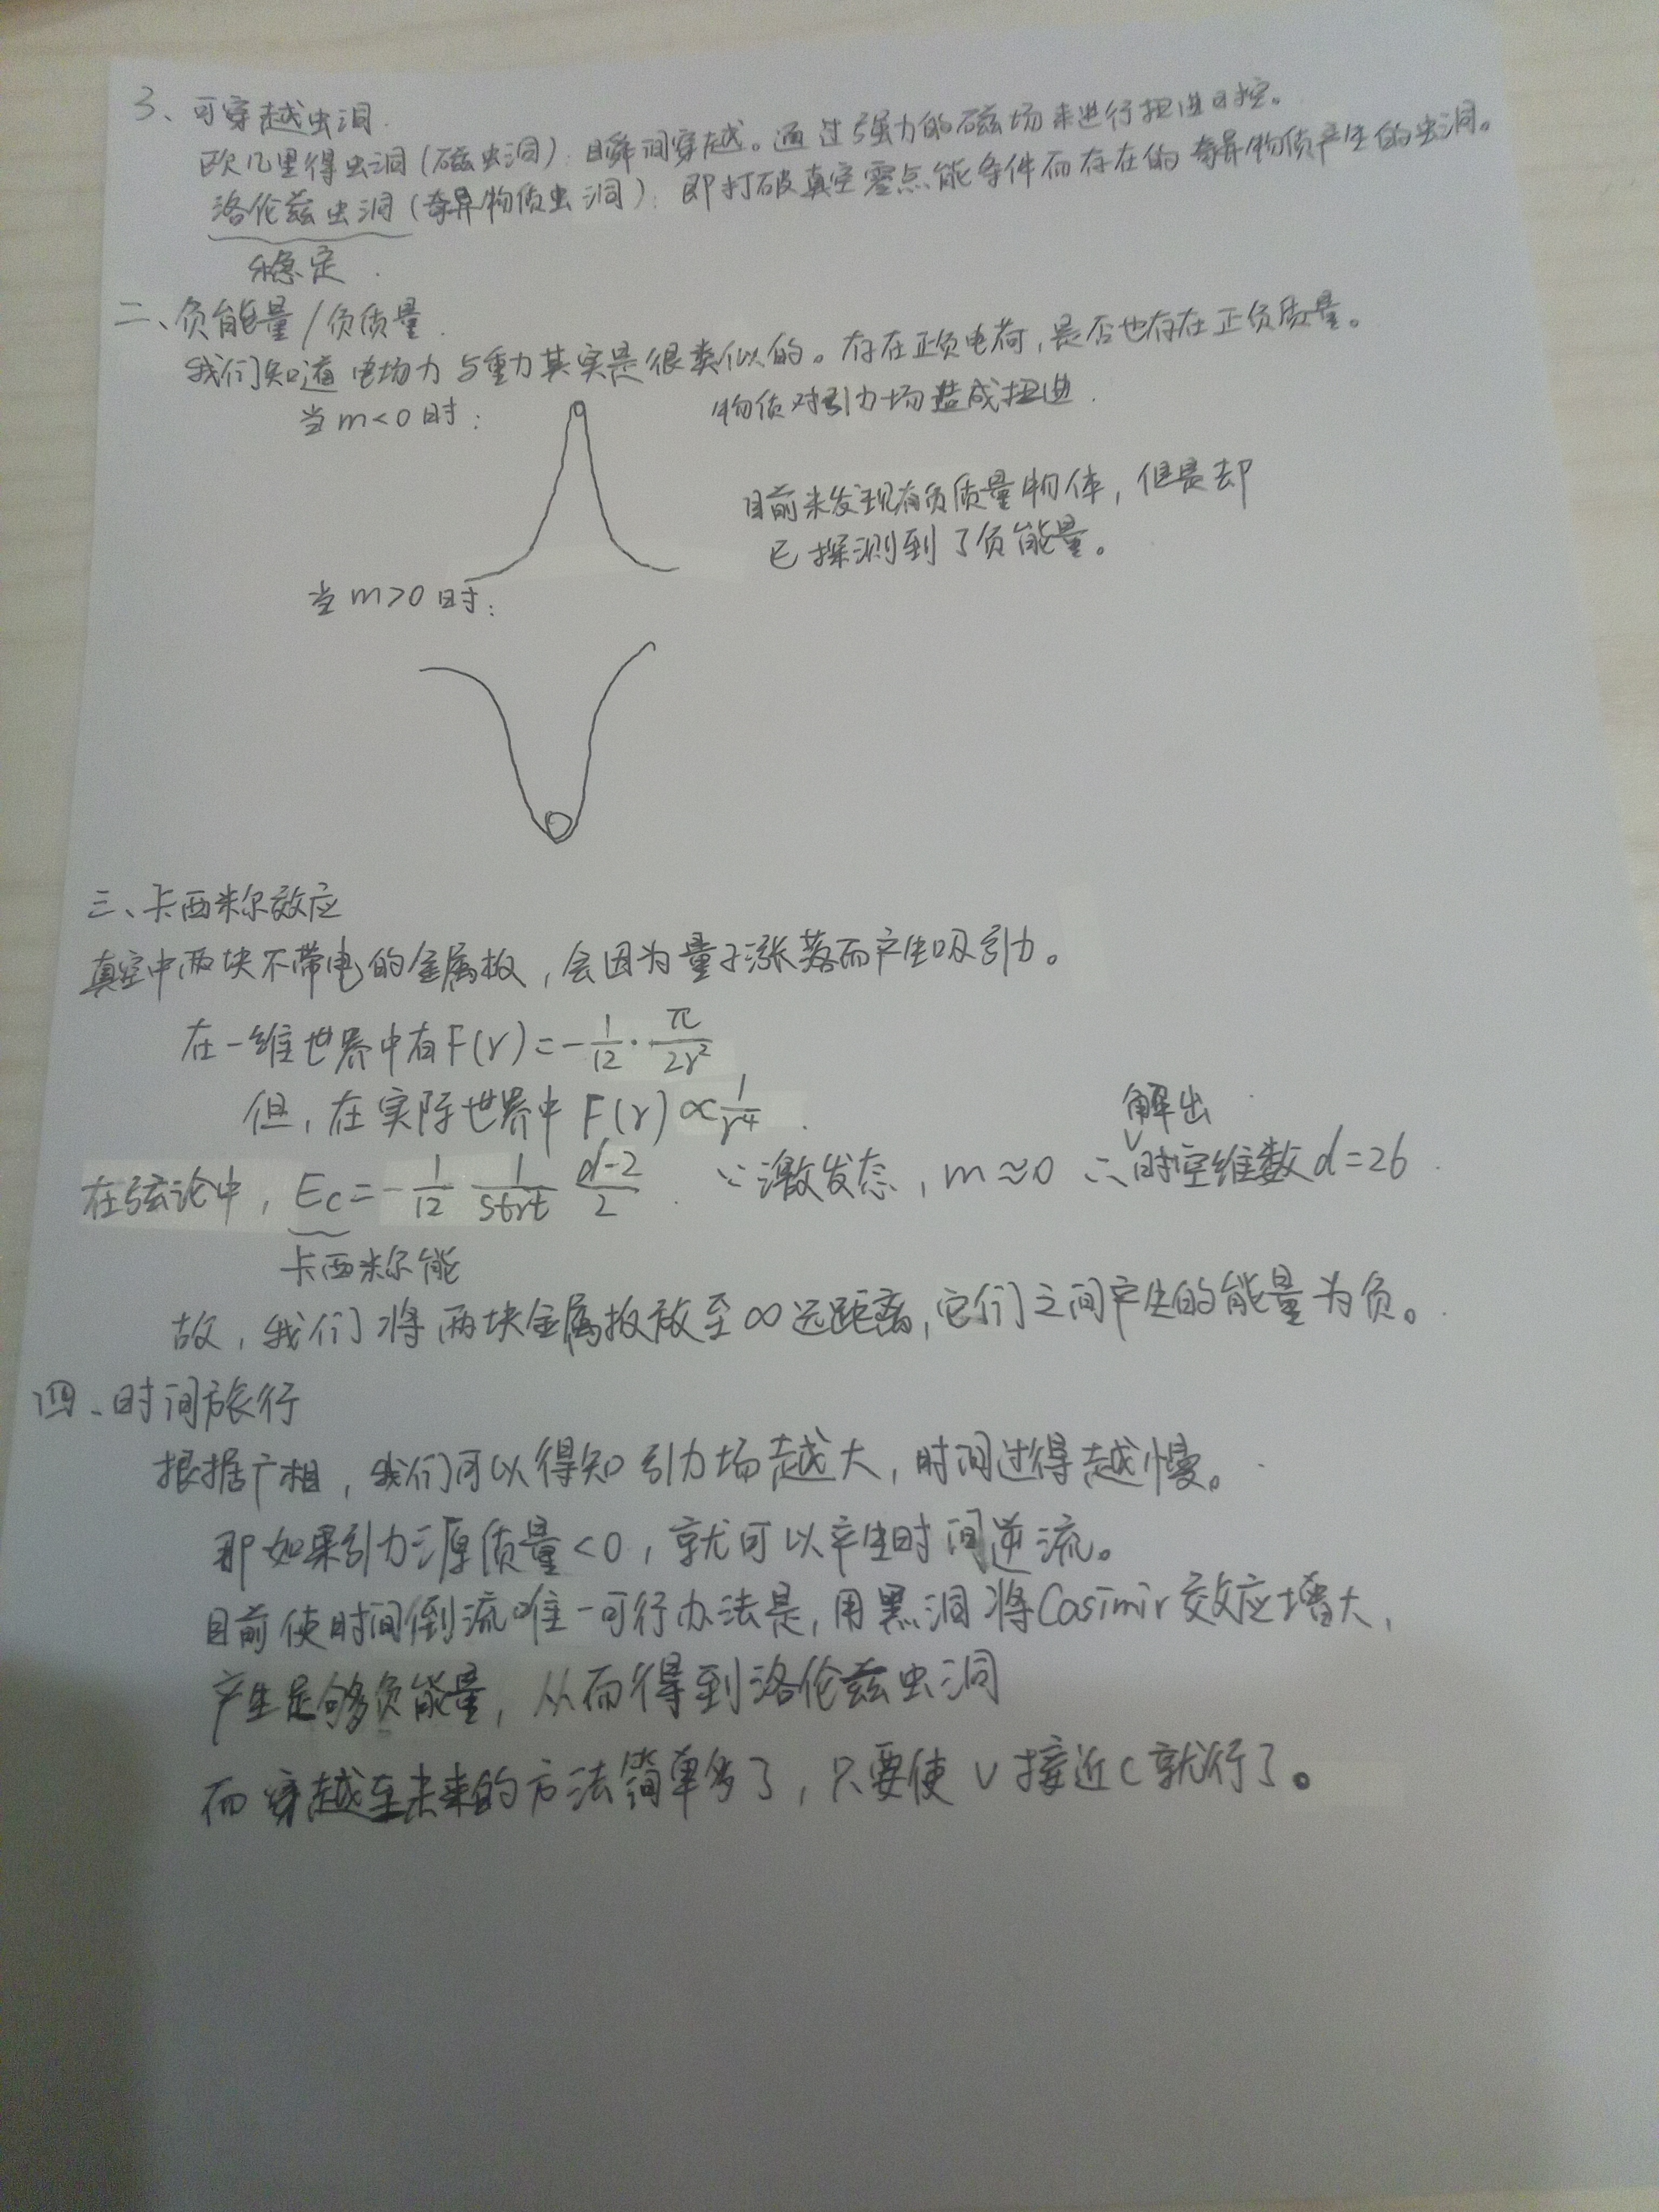 3、可穿越虫洞.
欧几里得虫洞(磁虫洞): 瞬间穿越。通过强力的磁场来进行扭进时空。
洛伦兹虫洞(奇异物质虫洞): 即打破真空零点能条件而存在的奇异物质产生的虫洞。
稳定.
二、负能量/负质量.
我们知道电场力与重力其实是很类似的。存在正负电荷,是否也存在正负质量。
当m<0时:
物质对引力场造成扭进.
目前未发现有负质量物体,但是却
已探测到了负能量。
当m>0时:
三、卡西米尔效应
真空中两块不带电的金属板,会因为量子涨落而产生吸引力。
在一维世界中有F(r)=-1/12·π/2r²
但,在实际世界中F(r)∝1/r⁴.
解出
在弦论中, Ec=-1/12 1/strt d-2/2. ∵激发态,m≈0 ∴时空维数d=26.
卡西米尔能
故,我们将两块金属板放至∞远距离,它们之间产生的能量为负。
四、时间旅行
根据广相,我们可以得知引力场越大,时间过得越慢。
那如果引力源质量<0,就可以产生时间逆流。
目前使时间倒流唯一可行办法是,用黑洞将Casimir效应增大,
产生足够负能量,从而得到洛伦兹虫洞
而穿越至未来的方法简单多了,只要使v接近c就行了。